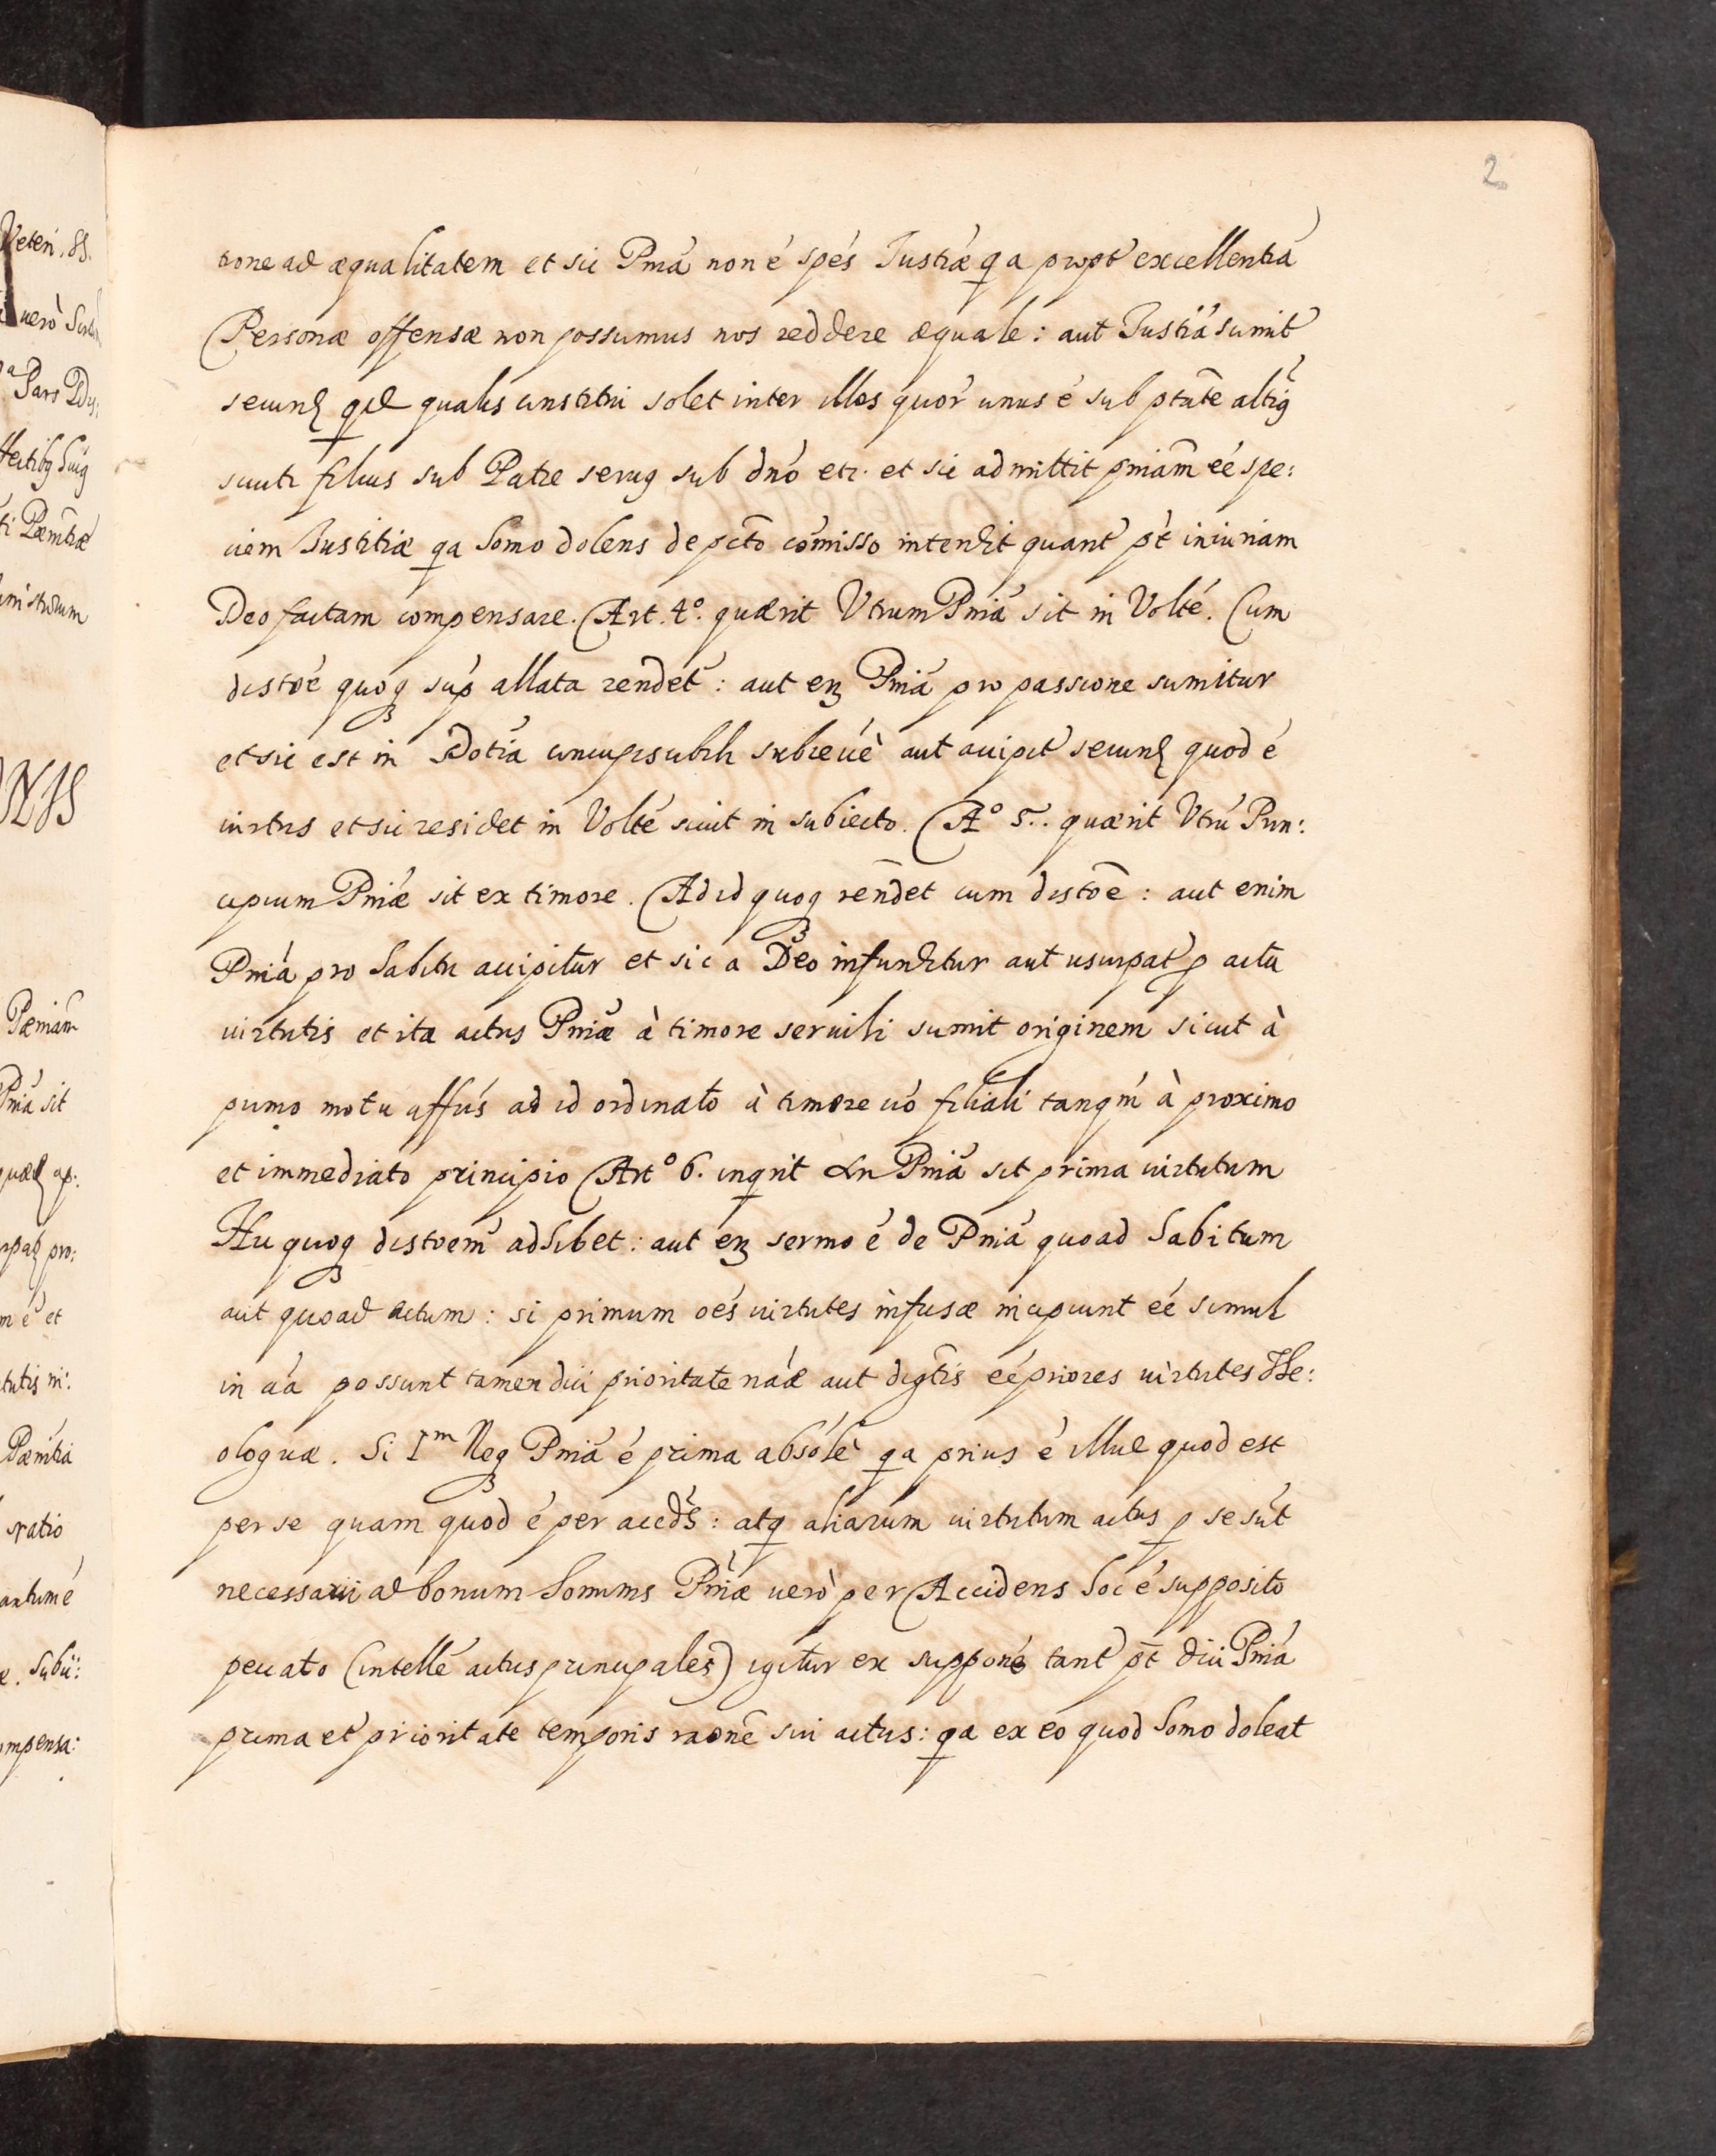 2
tione ad æqualitatem et sic Pniá non é spés Iustiæ qa propt excellentiá
Personæ offensæ non possumus nos reddere æquale: aut Iustiá sumit
secund qd qualis constitui solet inter illos quor unus é sub ptate altiq
sicuti filius sub Patre serug sub dno etc. et sic admittit pniam eé spe:
ciem Iustitiæ qa homo dolens de pcto comisso intendit quant pt iniuriam
Deo factam compensare. Art. 4º. quærit Utrum Pniá sit in Volté. Cum
distoé quoq sup allata rendet: aut en Pniá pro passione sumitur
et sic est in Potia concupisubili subiecté aut accipit secund quod é
virtus et sic residet in Volté sicut in subiecto. Aº 5. quærit Utrú Prin:
cipium Pniæ sit ex timore. Ad id quoq rendet cum distoe: aut enim
Pniá pro habitu accipitur et sic a Deo infunditur aut usurpat p actu
virtutis et ita actus Pniæ à timore servili sumit originem sicut à
primo motu affús ad id ordinato à timore uó filiali tanqm à proximo
et immediato principio Artº 6. inqrit An Pniá sit prima virtutum
Hic quoq distoem adhibet: aut en sermo é de Pniá quoad habitum
aut quoad actum: si primum oés virtutes infusæ incipiunt eé simul
in aá possunt tamen dici prioritate náæ aut digtis eé priores virtutes The:
ologicæ. Si Im Neq Pniá é prima absólé qa prius é illud quod est
per se quam quod é per accds: atq aliarum virtutum actus p se sút
necessarii ad bonum hominis Pniæ uerò per Accidens hoc é supposito
peccato (intellé actus principales) igitur ex suppone tant pt dici Pniá
prima et prioritate temporis raone sui actus: qa ex eo quod homo doleat